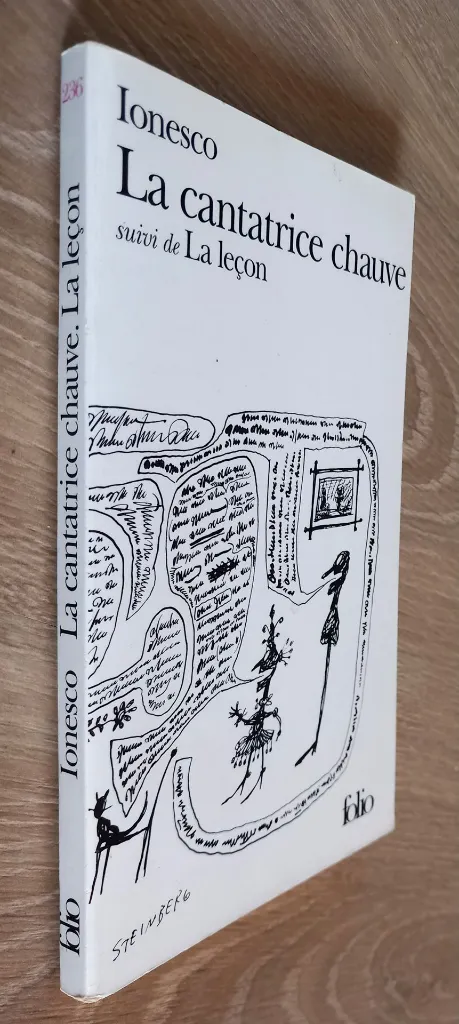 Ionesco
La cantatrice chauve
suivi de La leçon
folio
STEINBERG
236
Ionesco La cantatrice chauve. La leçon
folio